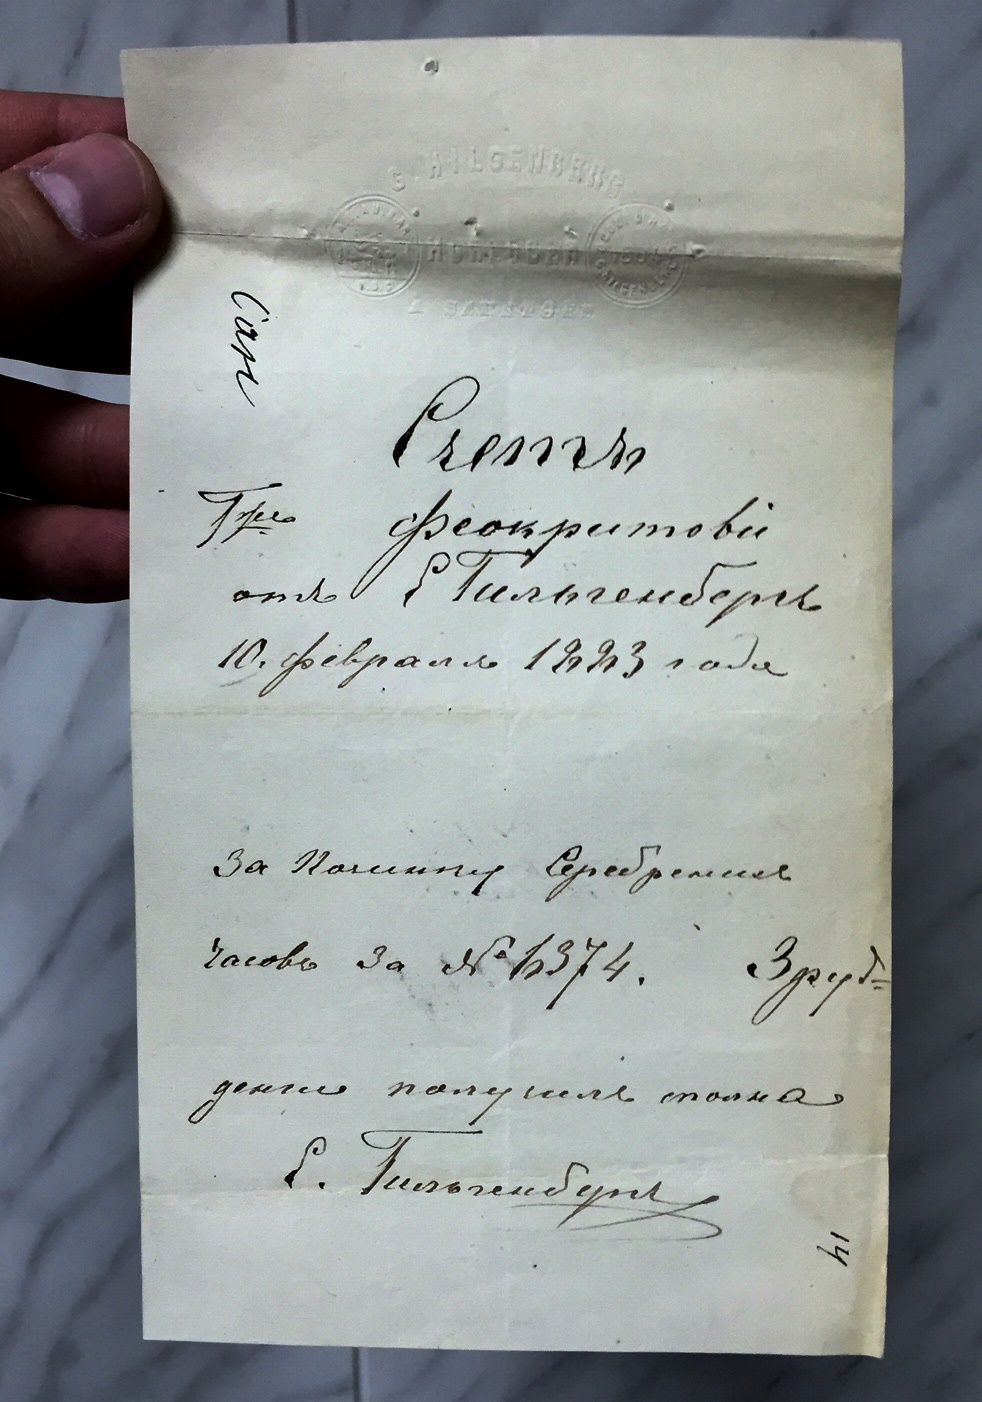 G. HILGENBERG
A SARATOFF
Сан
Счетъ
Гже Феокритовй
отъ Е Гильгенбергъ
10. Февраля 1883 года
За Починку Серебрених
часовъ За № 1374. 3 руб=
денги получилъ сполна
Е. Гильгенбергъ
14